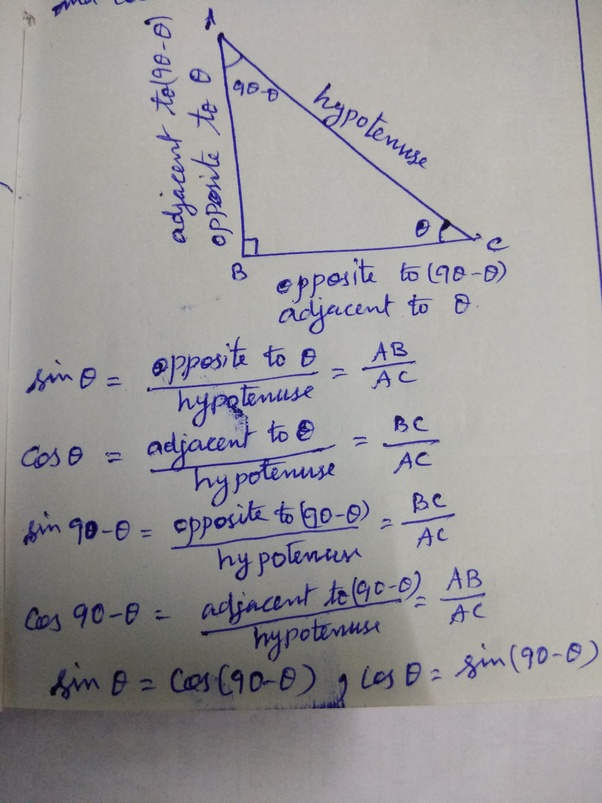 A
90-θ
adjacent to (90-θ)
opposite to θ
hypotenuse
θ
B
C
opposite to (90-θ)
adjacent to θ
sin θ = opposite to θ / hypotenuse = AB / AC
Cos θ = adjacent to θ / hypotenuse = BC / AC
sin 90-θ = opposite to (90-θ) / hypotenuse = BC / AC
Cos 90-θ = adjacent to (90-θ) / hypotenuse = AB / AC
sin θ = Cos (90-θ) , Cos θ = sin (90-θ)